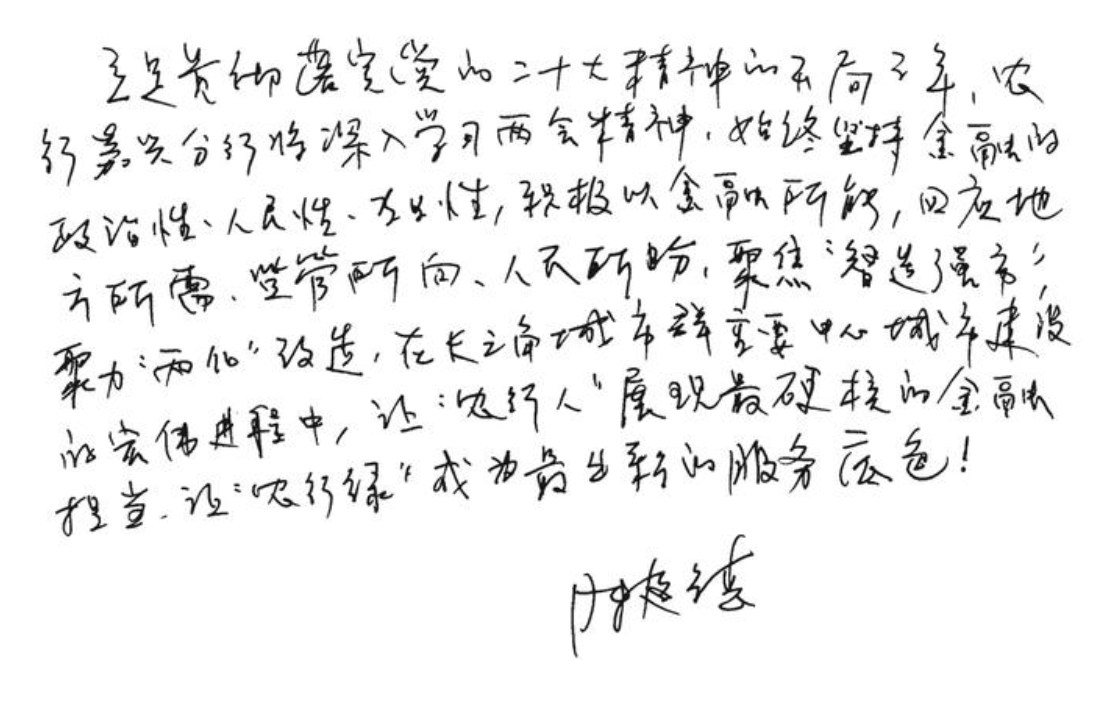 立足贯彻落实党的二十大精神的开局之年,农
行嘉兴分行将深入学习两会精神,始终坚持金融的
政治性、人民性、专业性,积极以金融所能,回应地
方所需、监管所向、人民所盼,聚焦“智造强市”,
聚力“两化”改造,在长三角城市群重要中心城市建设
的宏伟进程中,让“农行人”展现最硬核的金融
担当,让“农行绿”成为最出彩的服务底色!